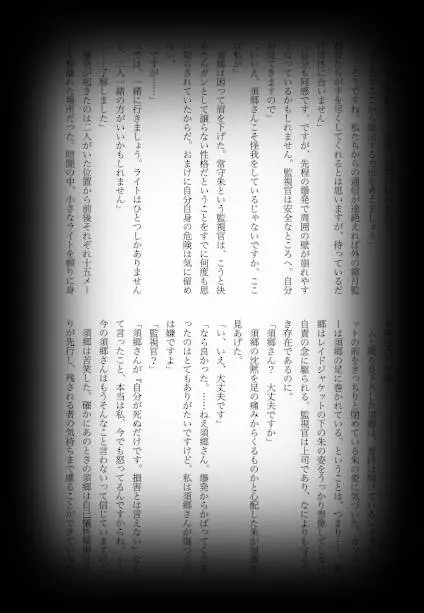 そうですね。私たちからの通信が途絶えれば外の霜月監
たちが手を尽くしてくれるとは思いますが、待っているだ
は性に合いません」
も同感です。ですが、先程の爆発で周囲の壁が崩れやす
なっているかもしれません。監視官は安全なところへ。自分
見てきますので」
「いいえ、須郷さんこそ怪我をしているじゃないですか。ここ
私が」
須郷は困って肩を下げた。常守朱という監視官は、こうと決
めたらガンとして譲らない性格だということをすでに何度も思
知らされていたからだ。おまけに自分自身の危険は気に留め
ない。
ですが……」
では、一緒に行きましょう。ライトはひとつしかありません
、二人一緒の方がいいかもしれません」
…了解しました」
爆発が起きたのは二人がいた位置から前後それぞれ十五メー
程離れた場所だった。暗闇の中、小さなライトを頼りに身
ットの前をきっちりと閉めている朱の姿に気づいた。
ーは須郷の足に巻かれている。ということは、つまり……
郷はレイドジャケットの下の朱の姿をうっかり想像してしまい
自責の念に駆られる。監視官は上司であり、なにより守る
き存在であるのに。
「須郷さん？　大丈夫ですか」
須郷の沈黙を足の痛みからくるものかと心配した朱が須郷を
見あげた。
「い、いえ、大丈夫です」
「なら良かった。……ねえ須郷さん、爆発からかばってくださ
ったのはとてもありがたいですけど、私は須郷さんが傷つく
は嫌ですよ」
「監視官？」
「須郷さんが『自分が死ぬだけです。損害とは言えない』な
て言ったこと、本当は私、今でも怒ってるんですからね。
今の須郷さんはもうそんなこと言わないって信じていますけ
須郷は苦笑した。確かにあのときの須郷は自己犠牲精神
りが先行し、残される者の気持ちまで慮ることができてい